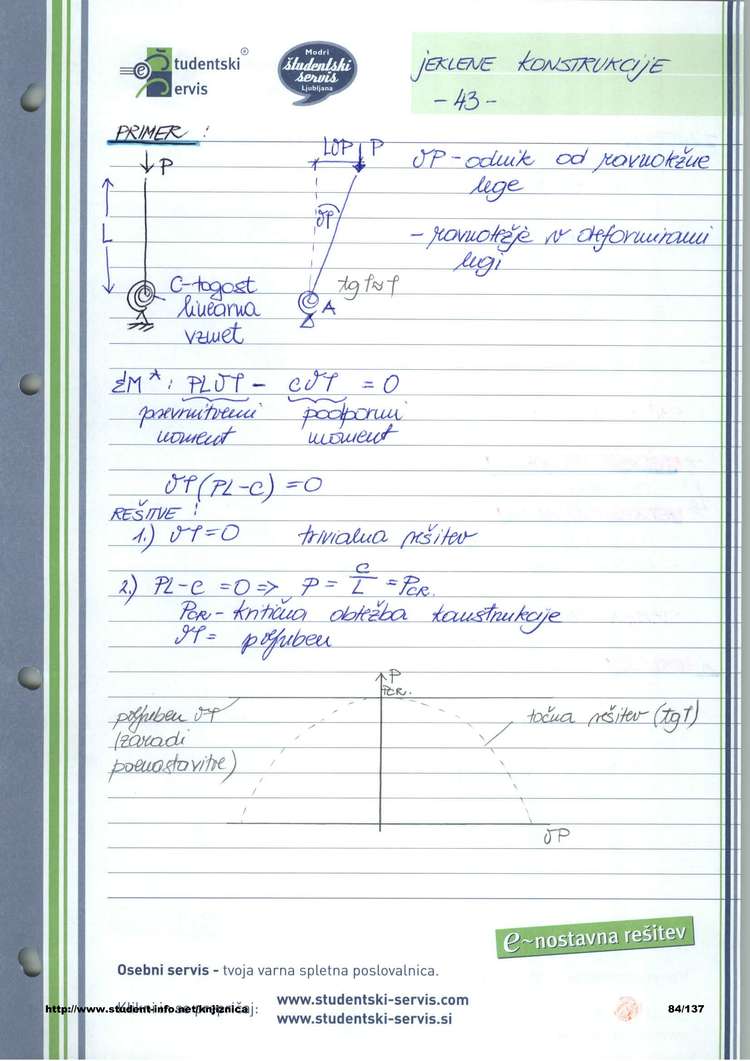 Študentski® Servis
Modri Študentski servis Ljubljana
JEKLENE KONSTRUKCIJE
- 43 -
PRIMER :
P
L
C-togost
linearna
vzmet
Lδφ P
δφ
tg φ ≈ φ
A
δφ - odmik od ravnotežne
lege
- ravnotežje v deformirani
legi
ΣM^A : PLδφ - Cδφ = 0
prevrnitveni podporni
moment moment
δφ (PL-C) = 0
REŠITVE :
1.) δφ = 0 trivialna rešitev
2.) PL-C = 0 => P = C/L = PCR.
PCR - kritična obtežba konstrukcije
δφ = poljuben
P
PCR.
poljuben δφ
(zaradi
poenostavitve)
točna rešitev (tg φ)
δφ
e~nostavna rešitev
Osebni servis - tvoja varna spletna poslovalnica.
http://www.student-info.net/knjiznica
www.studentski-servis.com
www.studentski-servis.si
84/137